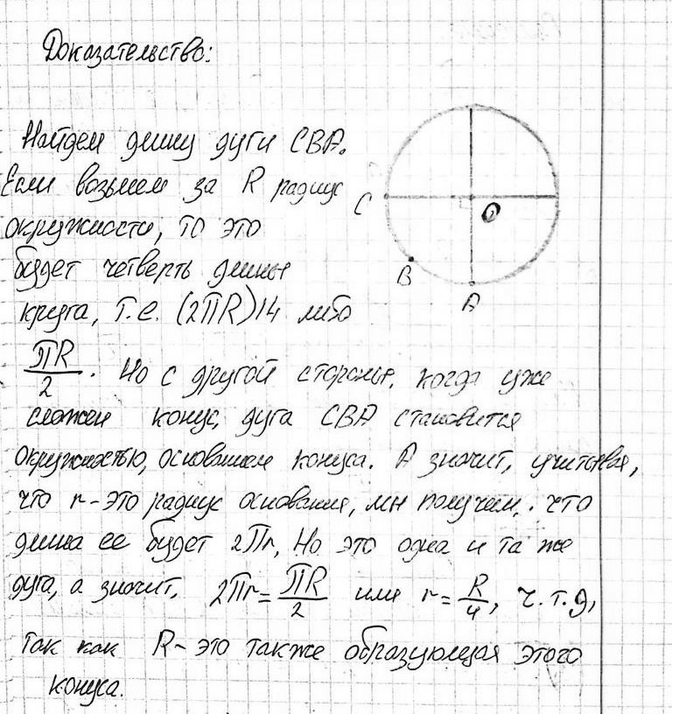 Доказательство:
Найдем длину дуги СВА.
Если возьмем за R радиус
окружности, то это
будет четверть длины
круга, т.е. (2ПR)/4 либо
ПR/2. Но с другой стороны, когда уже
сложен конус, дуга СВА становится
окружностью, основанием конуса. А значит, учитывая,
что r - это радиус основания, мы получим, что
длина ее будет 2Пr, Но это одна и та же
дуга, а значит, 2Пr = ПR/2 или r = R/4, ч.т.д,
так как R - это также образующая этого
конуса.
C
O
B
A